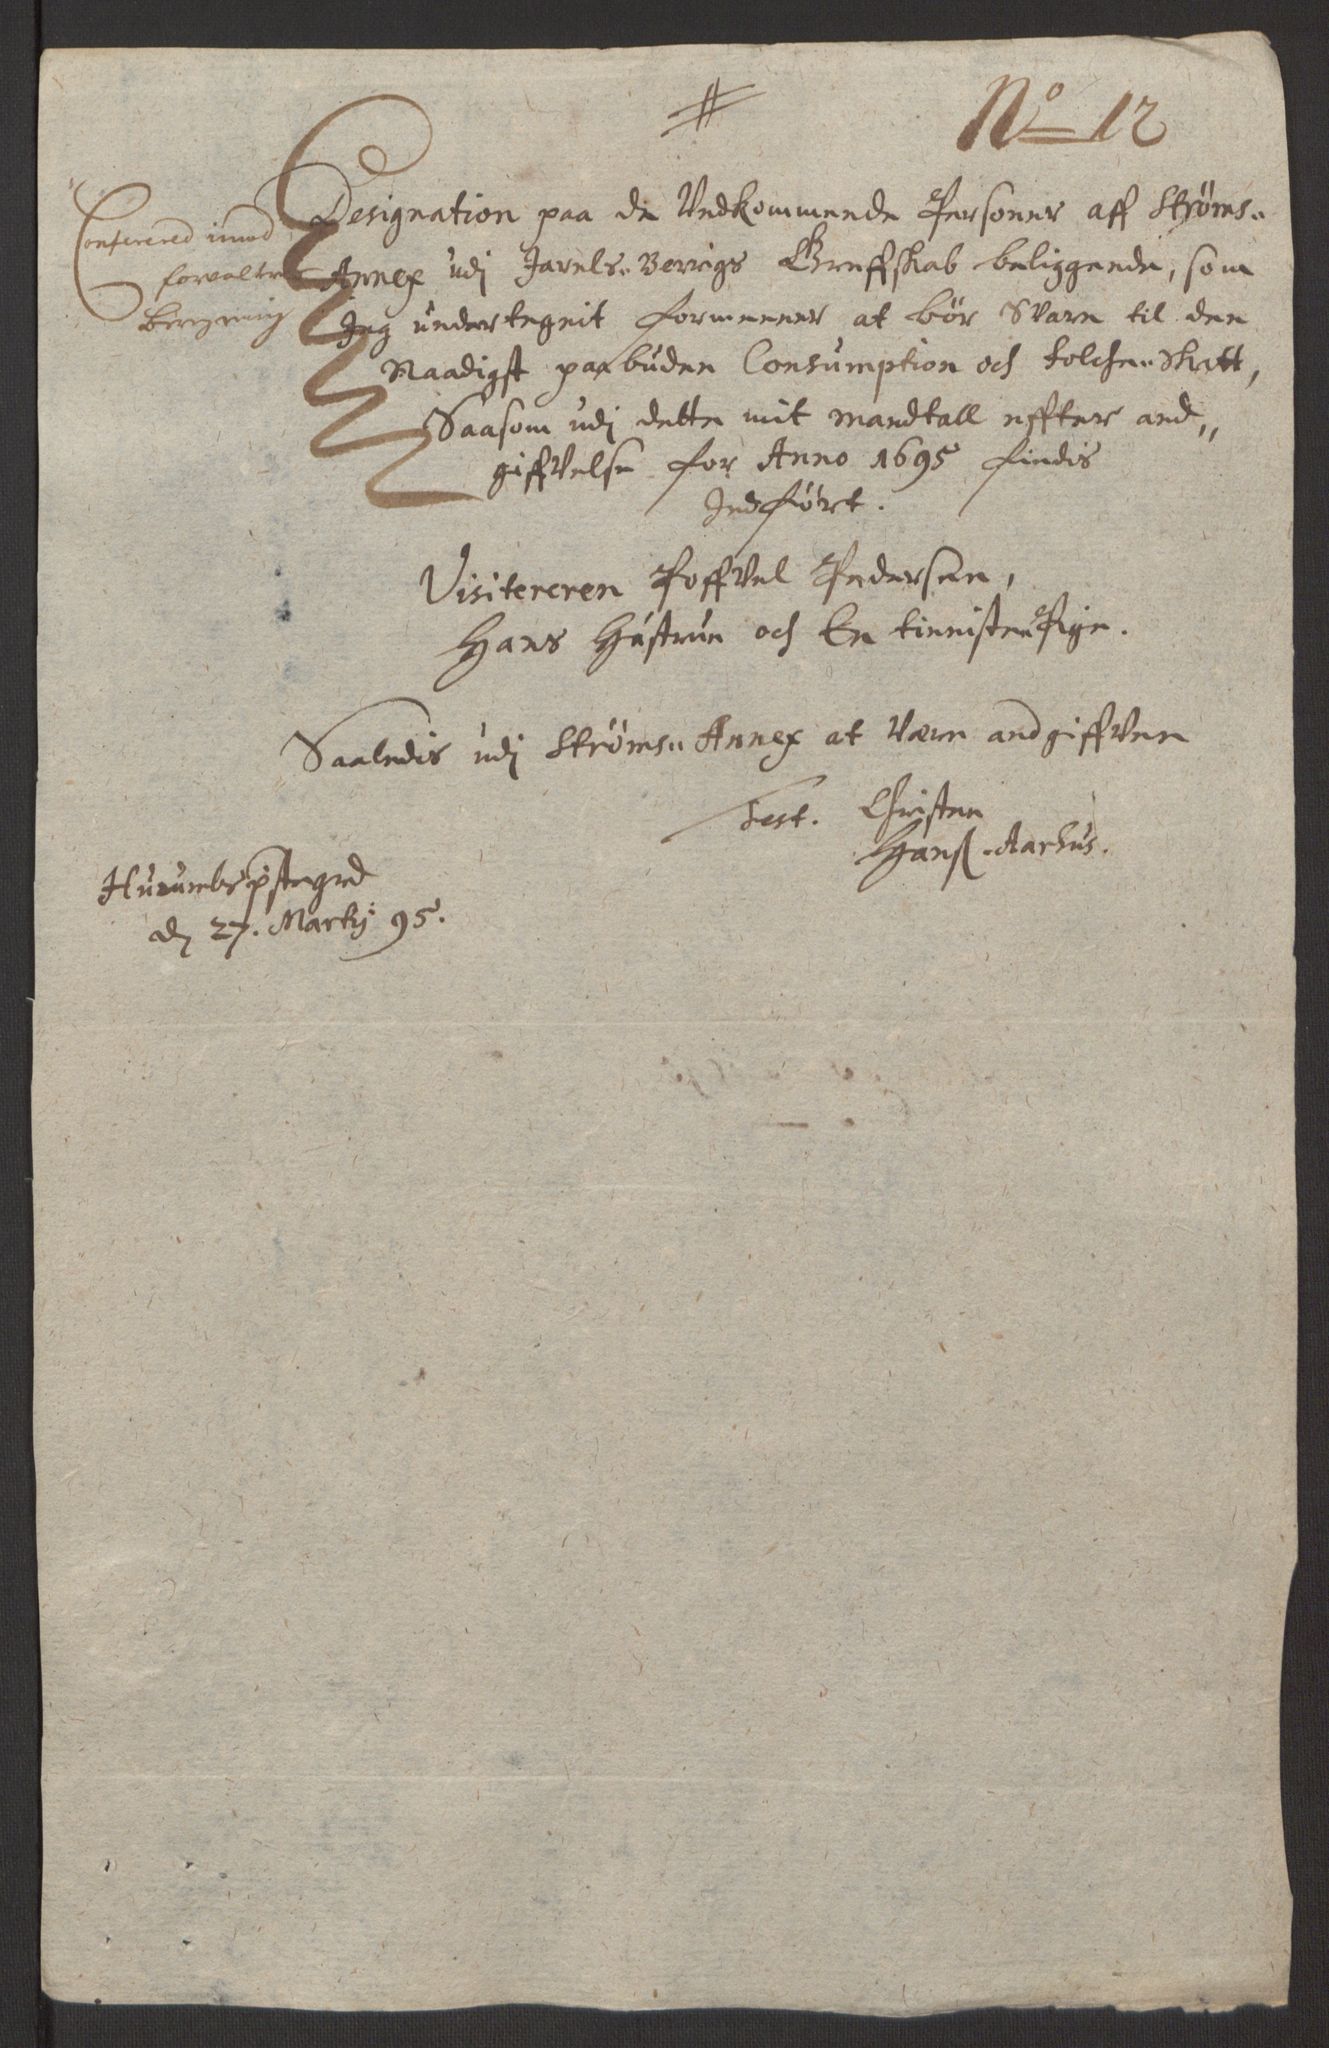 No 12
Conferered imod
forvalters
beregning
Designation paa de Vedkommende Personer aff Strøms-
Annex udj Jarels-Berrigs Greffskab beliggende, som
Jeg undertegnit formeener at bør Svare til den
Naadigst paabuden Consumption och folche-Skatt,
Saasom udj dette mit mandtall effter and,,
giffvelse for Anno 1695 findis
Indført.
Visitereren Poffvel Pedersen,
Hans Hustrue och En tienniste Pige.
Saaledis udj Strøms Annex at Være andgiffven
Test. Christen
Hanß. Aarhus.
Hurumbs pstegrd
dj 27. Martij 95.